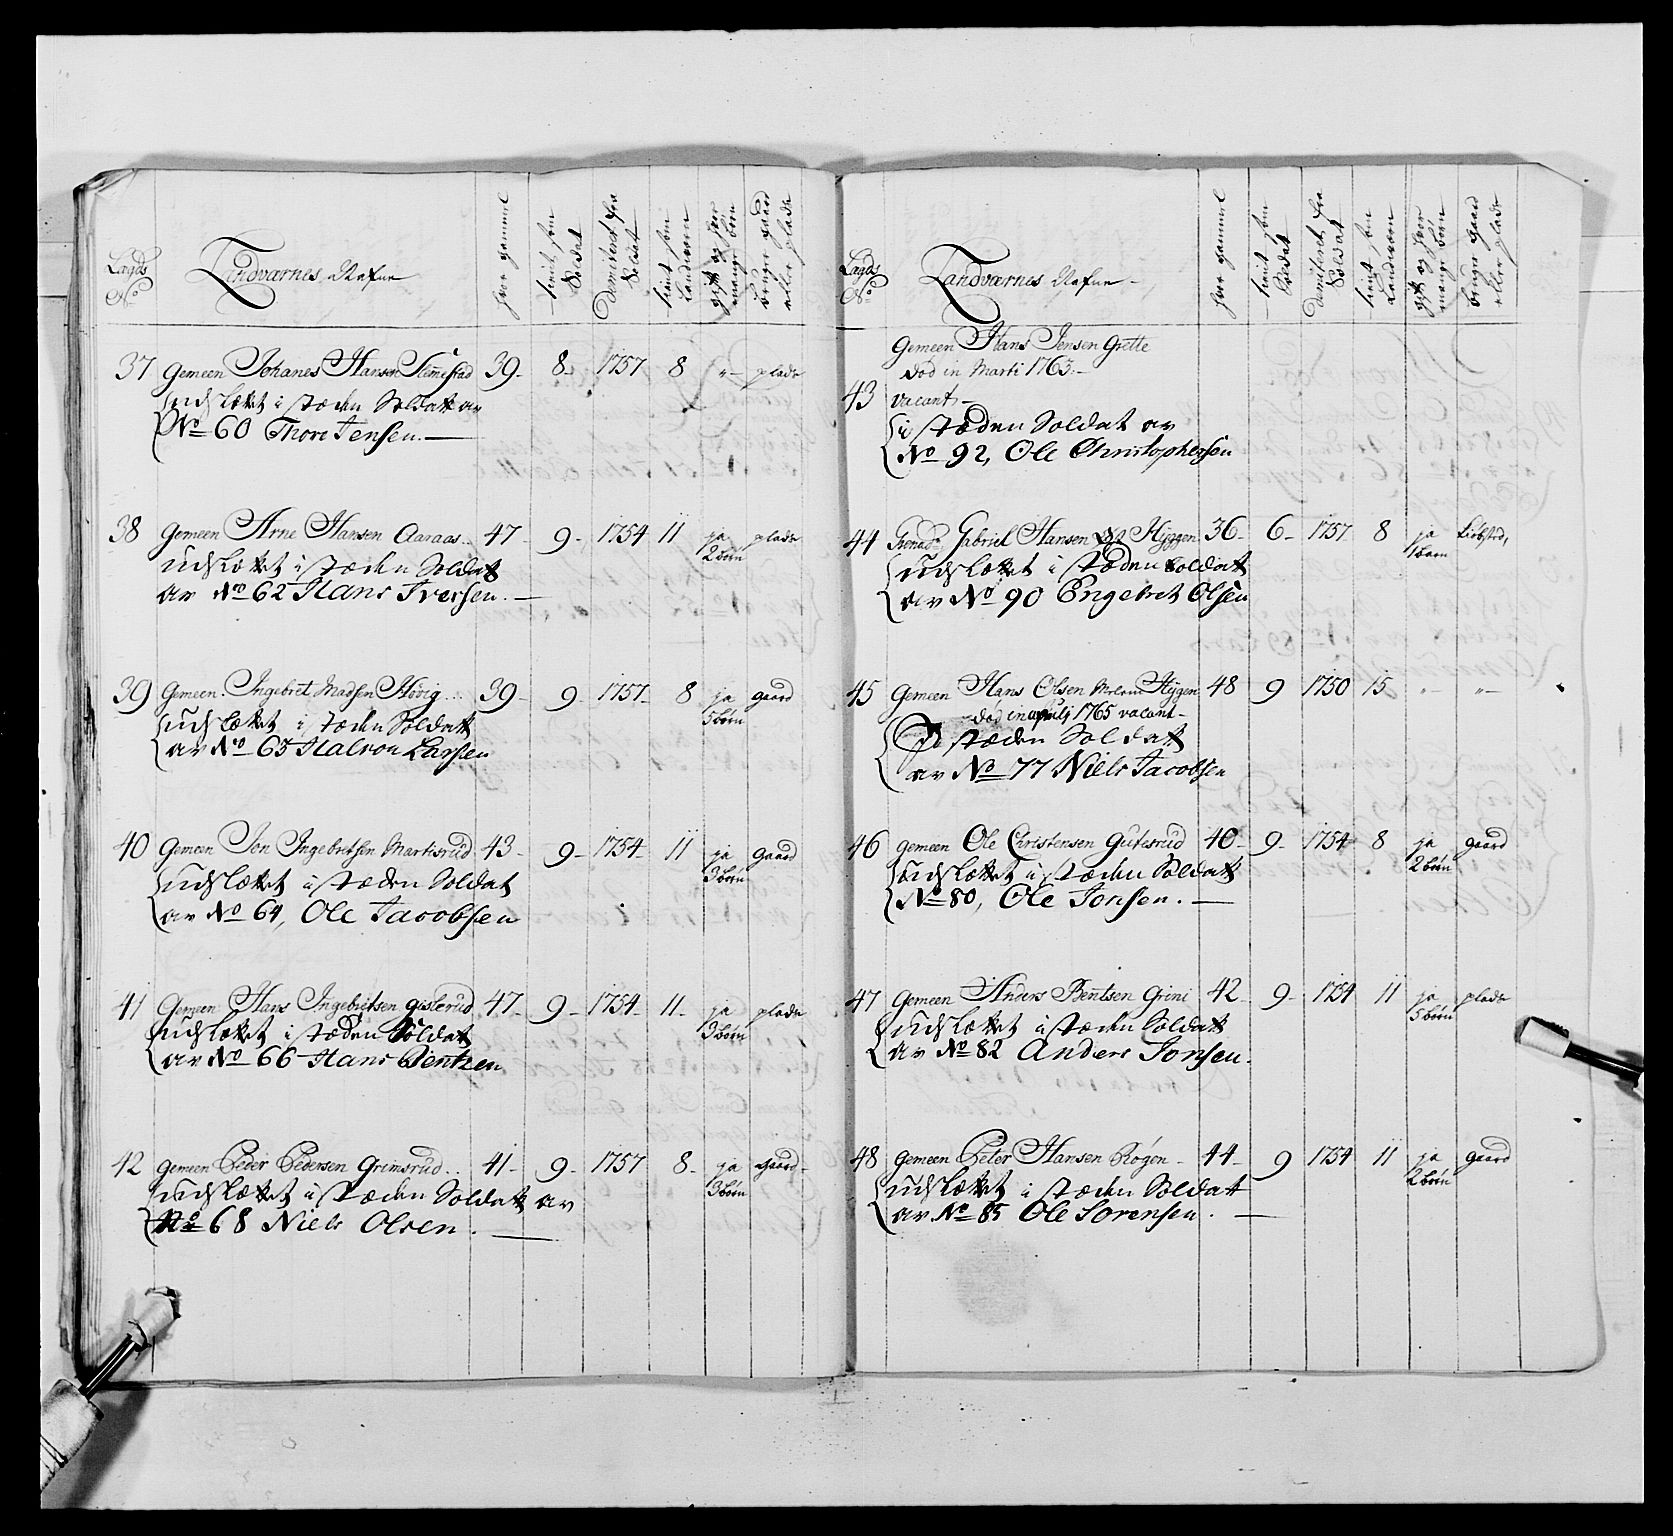 Lagds No
Landværnes Nafne
hvor gammel
tient som Soldat
dimiteret fra Soldat
tient som Landværn
gift og hvor mange børn
bruger gaard eller plads
37 Gemeen Johanes Hansen Slemestad 39 - 8 - 1757 8 " - plads
udslættet i stæden Soldat av
No 60 Thore Jensen. —
38 Gemeen Arne Hansen Aaraas - 47 - 9 - 1754 11 ja 2 børn plads
udslættet i stæden Soldat
av No 62 Hans Iversen. —
39 Gemeen Ingebret Madsen Høvig 39 - 9 - 1757 - 8 ja 5 børn gaard
udslættet i stæden Soldat
av No 63 Halvor Larsen
40 Gemeen Jon Ingebritsen Martisrud 43 - 9 - 1754 - 11 ja 3 børn gaard
udslættet i stæden Soldat
av No 64, Ole Jacobsen
41 Gemeen Hans Ingebrietsen Gislerud 47 - 9 - 1754 - 11 - ja 3 børn plads
udslættet i stæden Soldat
av No 66 Hans Bentzen
42 Gemeen Peder Pedersen Grimsrud 41 - 9 - 1757 8 - ja 3 børn Gaard -
udslættet i stæden Soldat av
No 68 Niels Olsen. —
Lagds No
Landværnes Nafne -
hvor gammel
tient som Soldat
dimiteret fra Soldat
tient som Landværn
gift og hvor mange børn
bruger gaard eller plads
Gemeen Hans Jensen Grette
død in Marti 1763. -
43 vacant -
i stæden Soldat av
No 92, Ole Christophersen
44 Gabriel Hansen Hyggen 36 - 6 - 1757 8 ja 1 barn
udslættet i stæden Soldat
av No 90 Engebret Olsen
45 Gemeen Hans Olsen Hyggen 48 9 1750 15 " - " -
død in aprilj 1765 vacant -
stæden Soldat
av No 77 Niels Jacobsen
46 gemeen Ole Christensen Gutesrud 40 - 9 - 1754 8 ja 2 børn gaard
udslættet i stæden Soldat
No 80, Ole Jonsen. —
47 Gemeen Anders Bentsen Grini 42 9 - 1754 11 ja 5 børn plads
udslættet i stæden Soldat
av No 82 Anders Jonsen.
48 Gemeen Peter Hansen Røgen - 44 - 9 1754 11 ja 2 børn gaard
udslættet i stæden Soldat
av No 85 Ole Sørensen. —